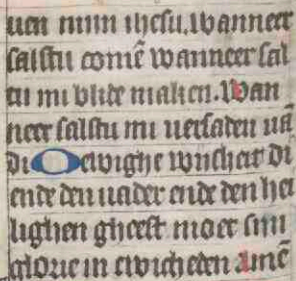 uen minn ihesu. wanneer
salstu comē wanneer sal
tu mi blide maken. Wan
neer salstu mi uersaden uā
di O ewighe wijsheit Di
ende den uader ende den hei
lighen gheest moet sijn
glorie in ewicheden amē